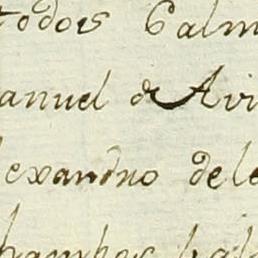 todos Calm
anuel de Avi
lexandro dele